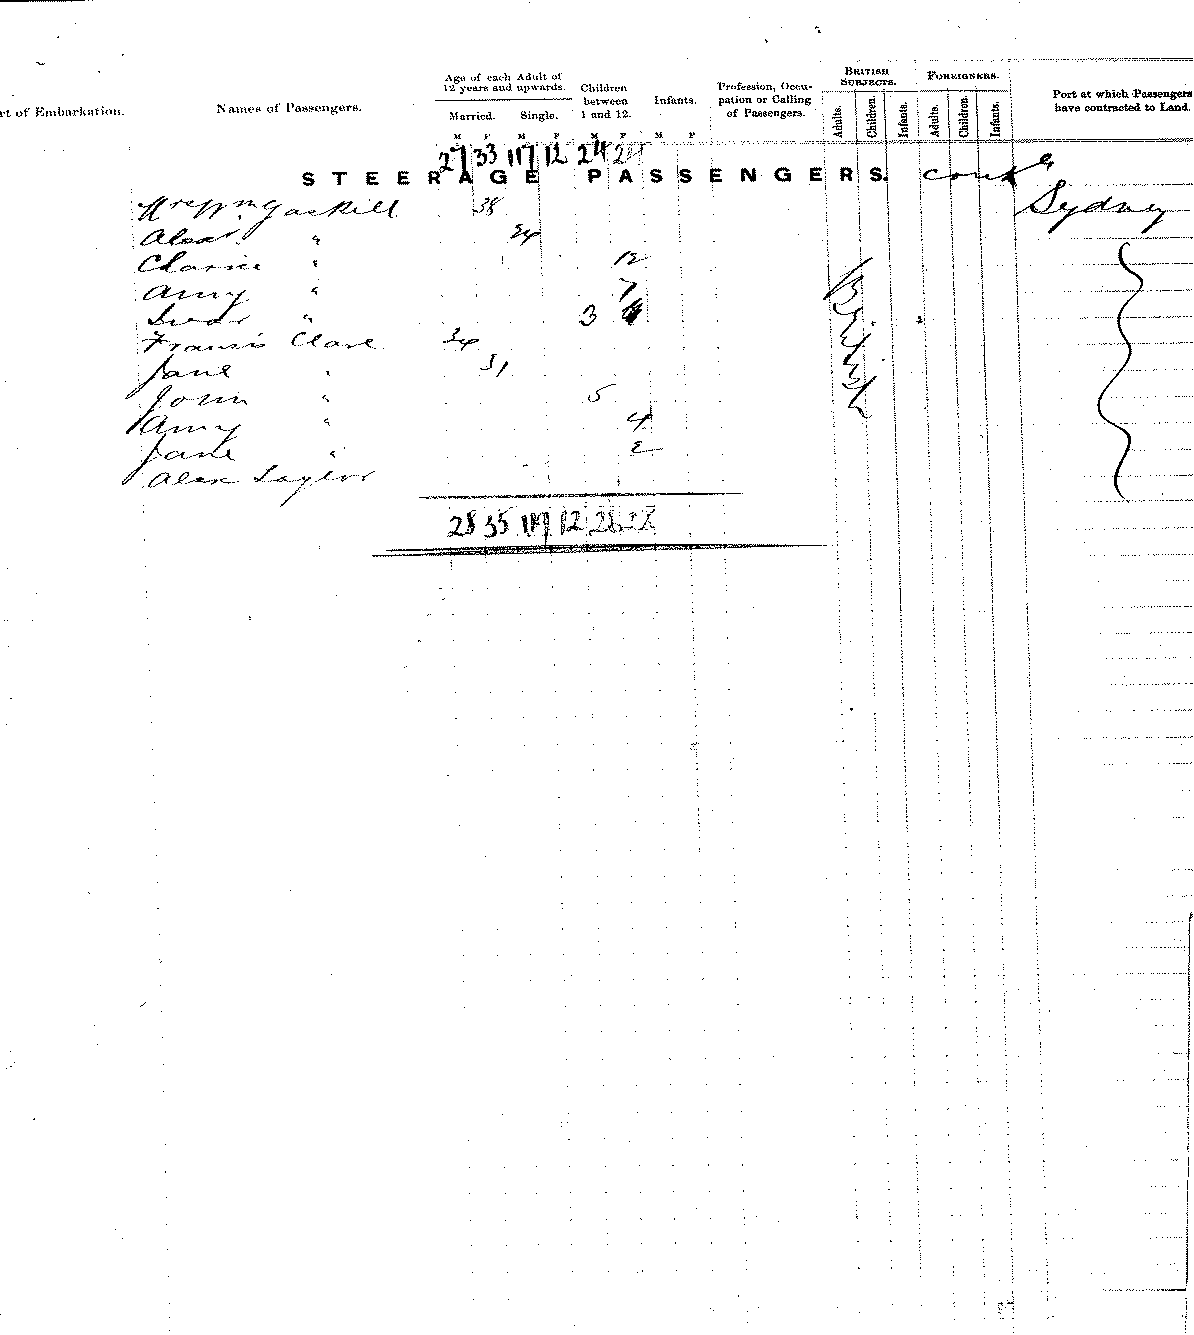 Age of each Adult of 12 years and upwards.
Married. Single.
Children between 1 and 12.
Infants.
Profession, Occupation or Calling of Passengers.
BRITISH SUBJECTS.
FOREIGNERS.
Adults. Children. Infants. Adults. Children. Infants.
Port at which Passengers have contracted to Land.
rt of Embarkation.
Names of Passengers.
M F M F M F M F
27 33 117 12 24 24
STEERAGE PASSENGERS. contd
Gaskill 38 Sydney
Alexr " 24
Clarice " 12
Amy " 7
" 3
Francis Clare 34
Jane " 31
John " 5
Amy " 4
Jane " 2
Alex Taylor
British
28 35 119 12